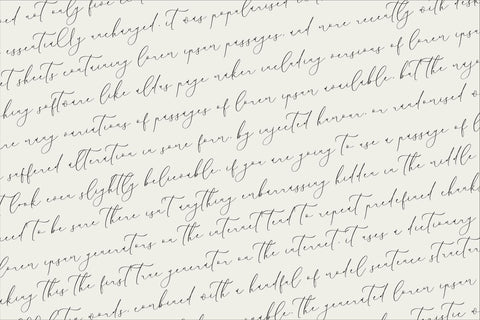 not only five
essentially unchanged. it was popularised
sheets containing lorem ipsum passages, and more recently with desk
software like aldus page maker including versions of lorem ipsum
many variations of passages of lorem ipsum available, but the majo
suffered alteration in some form, by injected humour, or randomised
look even slightly believable. if you are going to use a passage of l
need to be sure there isn't anything embarrassing hidden in the middle
lorem ipsum generators on the internet tend to repeat predefined chunks
king this the first true generator on the internet. it uses a dictionary
words, combined with a handful of model sentence structur
the generated lorem ipsum